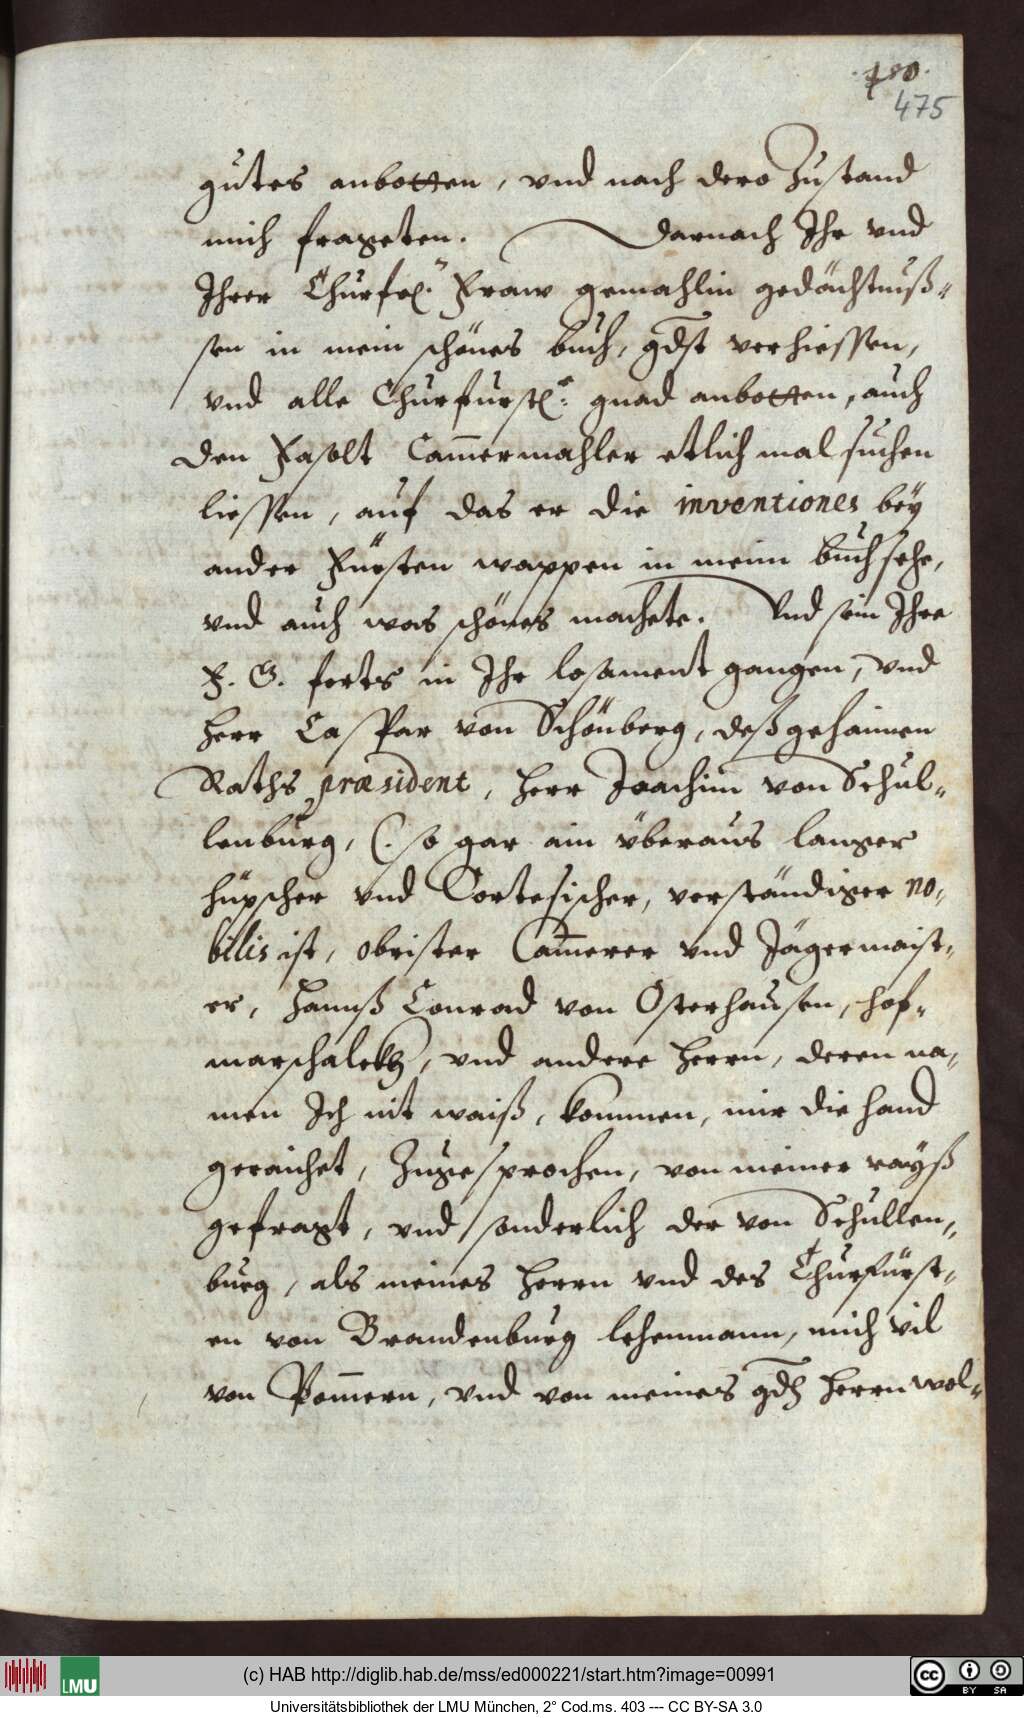 480.
475
gutes anbotten, vnd nach dero Zustand
mich frageten. Darnach Ihr vnd
Ihrer Churfel. Fraw gemahlin gedächtnuß-
sen in mein schönes buch, gdst verhiessen,
vnd alle Churfurstl: gnad anbotten, auch
den Fasolt Cam̄ermahler etlich mal suchen
liessen, auf das er die inventiones bey
ander Fürsten wappen in meim buch sehe,
vnd auch was schönes machete. Vnd sein Ihre
F. G. forts in Ihr losament gangen, vnd
herr Caspar von Schönberg, deß gehaimen
Raths præsident, herr Joachim von Schul-
lenburg, (. so gar ain überaus langer
hüpscher vnd Cortesischer, verständiger no-
bilis ist, obrister Cam̄erer vnd Jägermaist-
er, Hannß Conrad von Osterhausen, hof-
marschalckh, vnd andere herrn, deren na-
men Ich nit waiß, kommen, mir die hand
geraichet, Zugesprochen, von meiner rayß
gefragt, vnd sonderlich der von Schullen-
burg, als meines herrn vnd des Churfürst-
en von Brandenburg lehenmann, mich vil
von Pom̄ern, vnd von meines gdh herrn wol-
(c) HAB http://diglib.hab.de/mss/ed000221/start.htm?image=00991
LMU
cc BY SA
Universitätsbibliothek der LMU München, 2° Cod.ms. 403 --- CC BY-SA 3.0